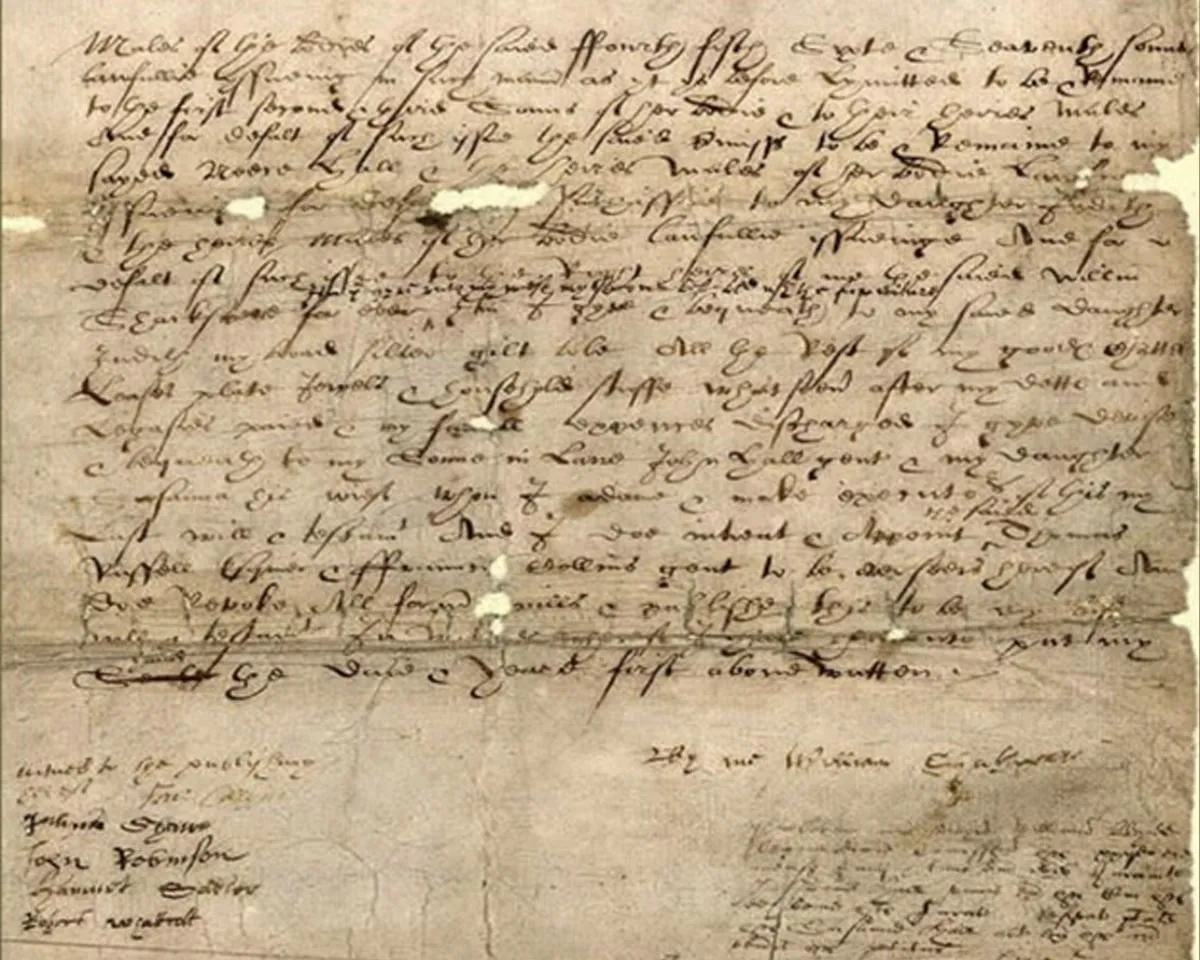 Males of the bodies of the saied ffourth fifth Sixte & Seaventh sonnes
lawfullie yssueing in such manner as yt ys before Lymitted to be & Remaine
to the first second & third Sonns of her bodie & to their heires Males
And for defalt of such issue the said premisses to be & Remaine to my
sayed Neece Hall & the heires Males of her bodie Lawfullie
yssueing for defalt of such issue to my daughter Judith
& the heires Males of her bodie lawfullie issueinge And for
defalt of such issue to the Right heires of me the saied Willm
Item I gyve unto my wief my second best bed with the furniture
Shackspeare for ever Itm I gyve & bequeath to my saied daughter
Judith my broad silver gilt bole All the Rest of my goodes Chattels
Leases plate Jewels & household stuffe whatsoever after my dettes and
Legasies paied & my funerall expences discharged I gyve devise
& bequeath to my Sonne in Lawe John Hall gent & my daughter
Susanna his wief whom I ordaine & make executors of this my
the saied
Last will & testament And I doe intreat & Appoint Thomas
Russell Esquier & ffrauncis Collins gent to be overseers hereof And
doe Revoke All former wills & publishe this to be my last
will & testament In witnes whereof I have hereunto put my
hand
Seale the daie & Yeare first above written.
By me William Shakspeare
witnes to the publishing
hereof Fra: Collyns
Julyus Shawe
John Robinson
Hamnet Sadler
Robert Whattcott